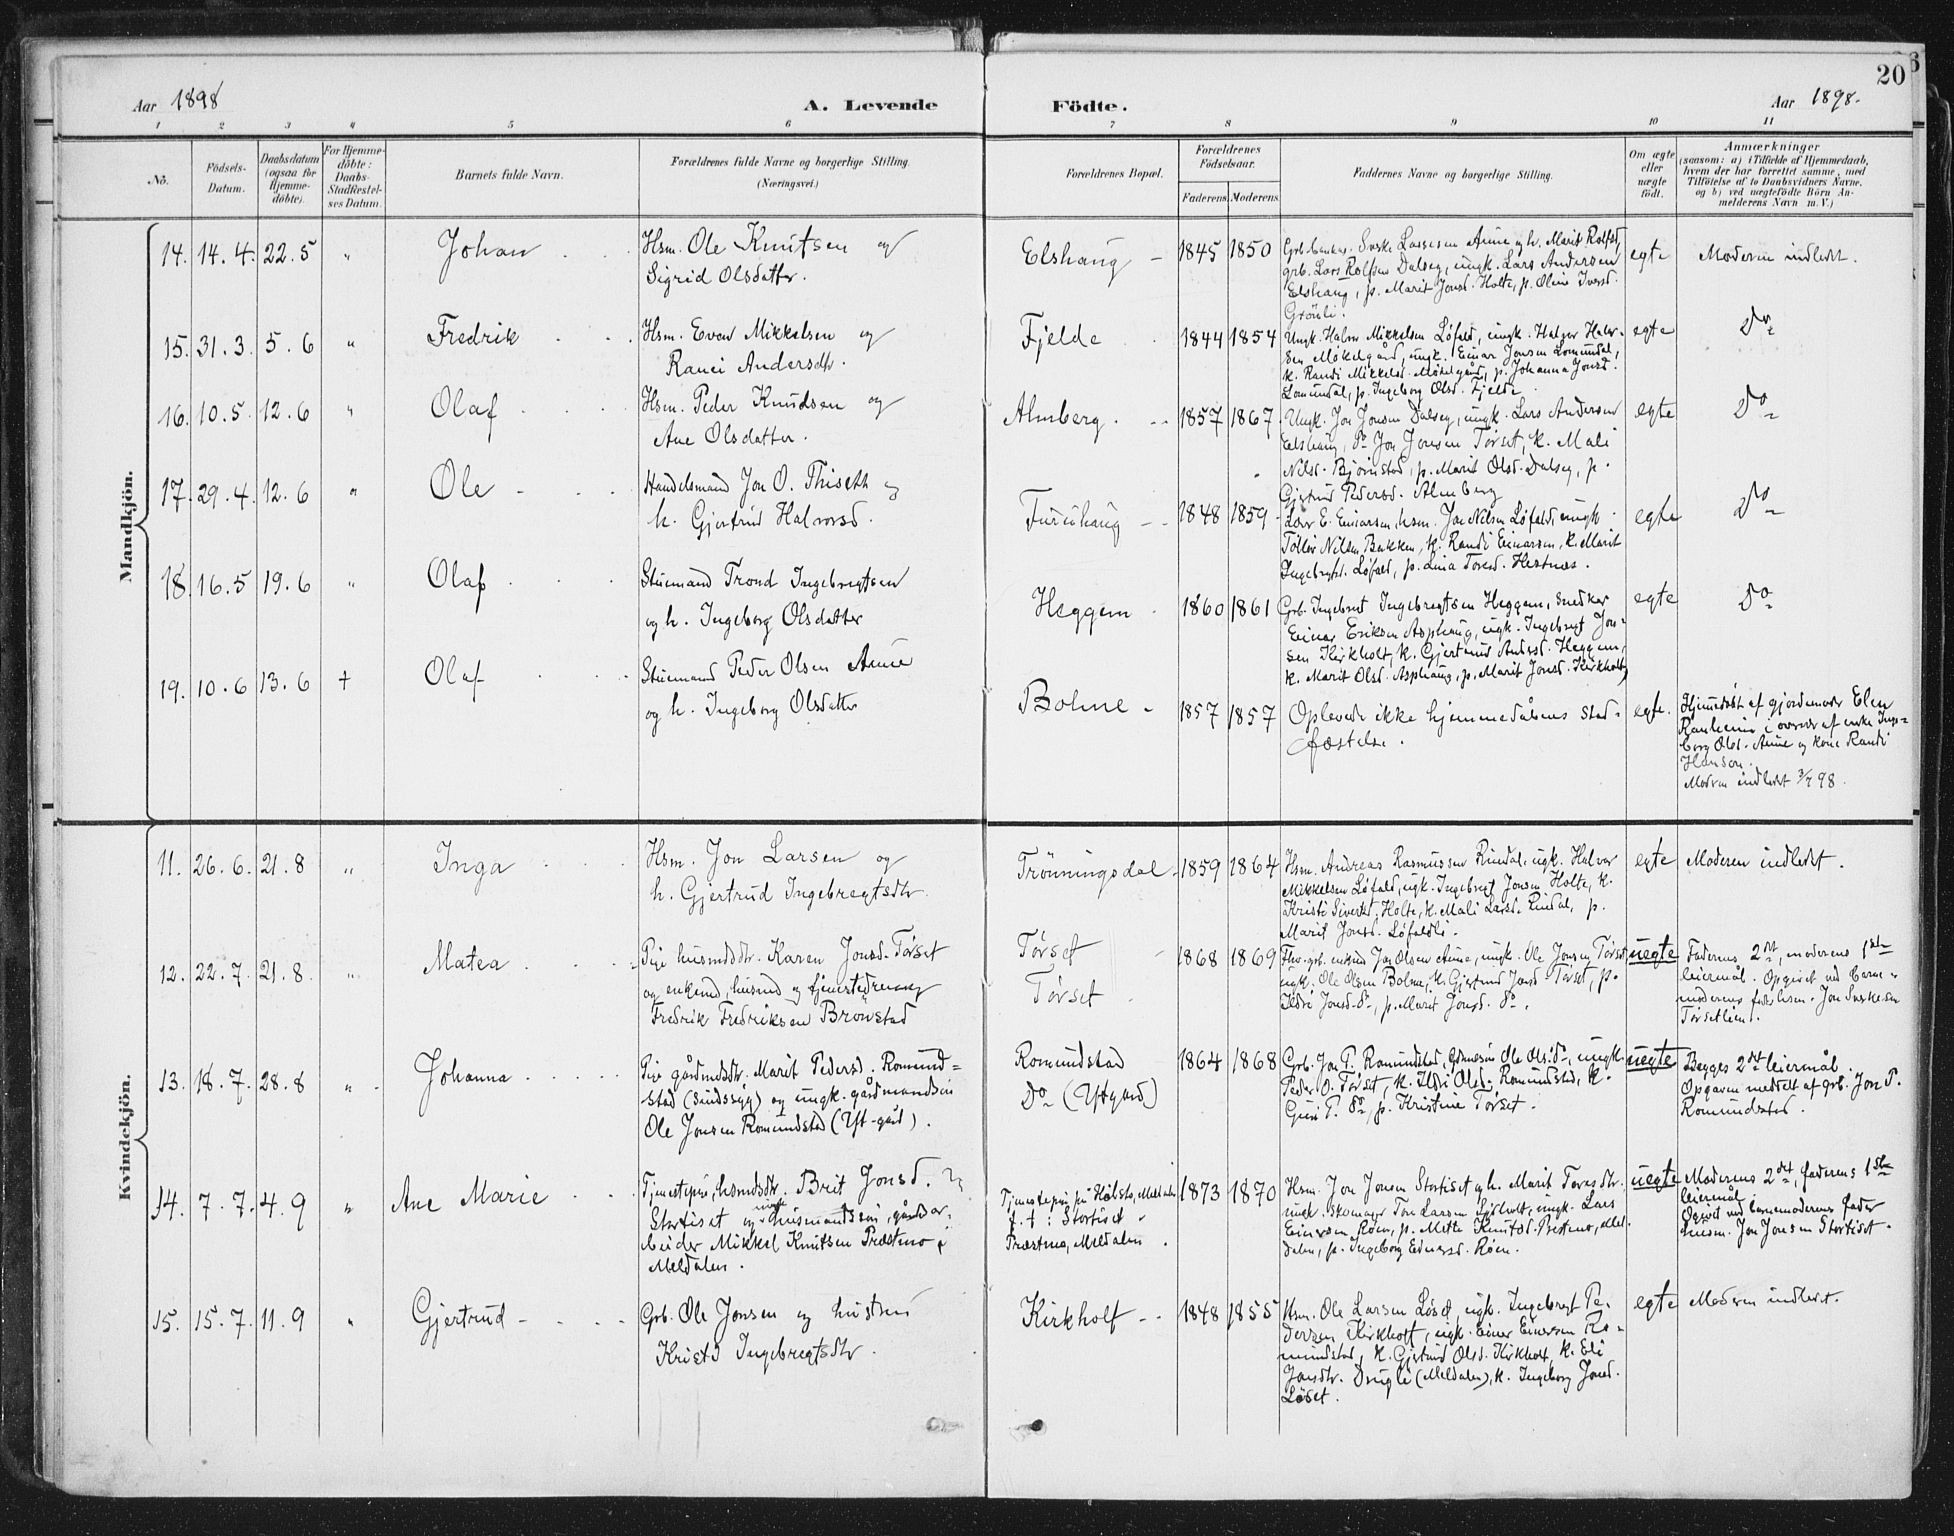 20
Aar 1898
A. Levende Födte.
Aar 1898.
1 2 3 4 5 6 7 8 9 10 11
No.
Födsels-Datum.
Daabsdatum (ogsaa for Hjemme-döbte).
For Hjemme-döbte: Daabs-Stadfæstel-ses Datum.
Barnets fulde Navn.
Forældrenes fulde Navne og borgerlige Stilling. (Næringsvei.)
Forældrenes Bopæl.
Forældrenes Födselsaar.
Faderens Moderens
Faddernes Navne og borgerlige Stilling.
Om ægte eller uægte födt.
Anmærkninger
(saasom: a) i Tilfælde af Hjemmedaab, hvem der har forrettet samme, med Tilföielse af to Daabsvidners Navne, og b) ved uegtefödte Börn An-melderens Navn m.V.)
Mandkjön.
14. 14.4. 22.5 " Johan
Hsm. Ole Knutsen og
Sigrid Olsdatter.
Elshaug 1845 1850
grb. Lars Rolfsen Dalseg, ungk. Lars Andersen
Elshaug, p. Marit Jonsd. Holte, p. Oline Iversd.
Grönli.
egte Moderen indledet.
15. 31.3. 5.6 " Fredrik
Hsm. Even Mikkelsen og
Ranei Andersdtr.
Fjelde 1844 1854
Ungk. Halvor Mikkelsen Löfald, ungk. Halvor Halvor-
sen Mökelgård, ungk. Einar Jonsen Lomundal,
k. Randi Mikkelsd. Mökelgård, p. Johanna Jonsd.
Lomundal, p. Ingeborg Olsd. Fjelde.
egte Do
16. 10.5. 12.6 " Olaf
Hsm. Peder Knudsen og
Ane Olsdatter.
Almberg. 1857 1867
Ungk. Jon Jonsen Dalseg, ungk. Lars Andersen
Elshaug, Do Jon Jonsen Törset, k. Mali
Nilsd. Björnstad, p. Marit Olsd. Dalseg, p.
Gjertrud Pedersd. Almberg
egte Do
17. 29.4. 12.6 " Ole
Handelsmand Jon O. Thiseth og
h. Gjertrud Halvorsd.
Furuhaug 1848 1859
E. Einarsen, hsm. Jon Nilsen Löfald, ungk.
Nilsen Bakken, k. Randi Einarsen, k. Marit
Ingebrgtsd. Löfald, p. Lina Toresd. Hestnes.
egte Do
18. 16.5 19.6 " Olaf
Stuemand Trond Ingebregtsen
og h. Ingeborg Olsdatter
Heggem 1860 1861
Grb. Ingebregt Ingebregtsen Heggem, Snedker
Einar Eriksen Asphaug, ungk. Ingebregt Jon-
sen Kirkholt, k. Gjertrud Andersd. Heggem,
k. Marit Olsd. Asphaug, p. Marit Jonsd. Kirkholt
egte Do
19. 10.6 13.6 + Olaf
Stuemand Peder Olsen Aune
og h. Ingeborg Olsdatter
Bolme 1857 1857
Oplevede ikke hjemmedåbens Stad-
fæstelse.
egte. Hjemdöbt af gjordemoder Elen
Ranheim i overvær af enke Inge-
borg Olsd. Aune og kone Randi
Hanson.
Modren indledet 3/7 98.
Kvindekjön.
11. 26.6. 21.8 " Inga
Hsm. Jon Larsen og
h. Gjertrud Ingebregtsdtr.
Trönningsdal 1859 1864
Hsm. Andreas Rasmussen Rindal, ugk. Halvor
Mikkelsen Löfald, ugk. Ingebregt Jonsen Holte, k.
Kristi Sivertsd. Holte, k. Mali Larsd. Rindal, p.
Marit Jonsd. Löfaldli.
egte Moderen indledet.
12. 22.7. 21.8. " Matea
Pige husmdsdtr. Karen Jonsd. Törset
og enkemd, husmd og tjenestedreng
Fredrik Fredriksen Brönstad
Törset
Törset
1868 1869
Jon Olsen Aune, ungk. Ole Jonsen Törset,
ungk. Ole Olsen Bolme, k. Gjertrud Jonsd. Törset, p.
Ildri Jonsd. do, p. Marit Jonsd. do.
uegte Faderens 2det, moderens 1ste
leiermål. Opgivet ved barne-
moderens
Törsetlien.
13. 18.7. 28.8 " Johanna
Pige gårdmdsdtr. Marit Pedersd. Romund-
stad (Sindsyg) og ungk. gårdmandssön
Ole Jonsen Romundstad (Yst-gård).
Romundstad
Do (Ystgård)
1864 1868
Grb. Jon P. Romundstad, Ole Ols. do, ungk.
Peder O. Törset, k. Ildri Olsd. Romundstad, k.
Guri P. do, p. Kristine Törset.
uegte Begges 2det leiermål.
Opgaven meddelt af grb. Jon P.
Romundstad.
14. 7.7. 4.9 " Ane Marie
Tjenestepige, hsmdsdtr. Brit Jonsd.
Stortiset og ungk. husmandssön, gårdsar-
beider Mikkel Knutsen Præstmo i
Meldalen.
Tjenestepige på Meldalen
f.t: Stortiset
Præstmo, Meldalen.
1873 1870
Hsm. Jon Jonsen Stortiset og h. Marit Toresdtr.
ungk. Skomager Tore Larsen ungk. Lars
Einersen Röen, p. Mette Knutsd. Prestmo, Mel-
dalen, p. Ingeborg Einersd. Röen.
uegte Moderens 2det, faderens 1ste
leiermål.
Opgivet ved barnemoderens fader
husm. Jon Jonsen Stortiset.
15. 15.7. 11.9 " Gjertrud
Grb. Ole Jonsen og hustru
Kristi Ingebregtsdtr.
Kirkholt 1848 1855
Hsm. Ole Larsen Löset, ugk. Ingebregt Pe-
dersen Kirkholt, ugk. Einer Einersen Ro-
mundstad, k. Gjertrud Olsd. Kirkholt, k. Eli
Jonsdtr. Drugli (Meldalen), k. Ingeborg Jonsd.
Löset.
egte Moderen indledet.